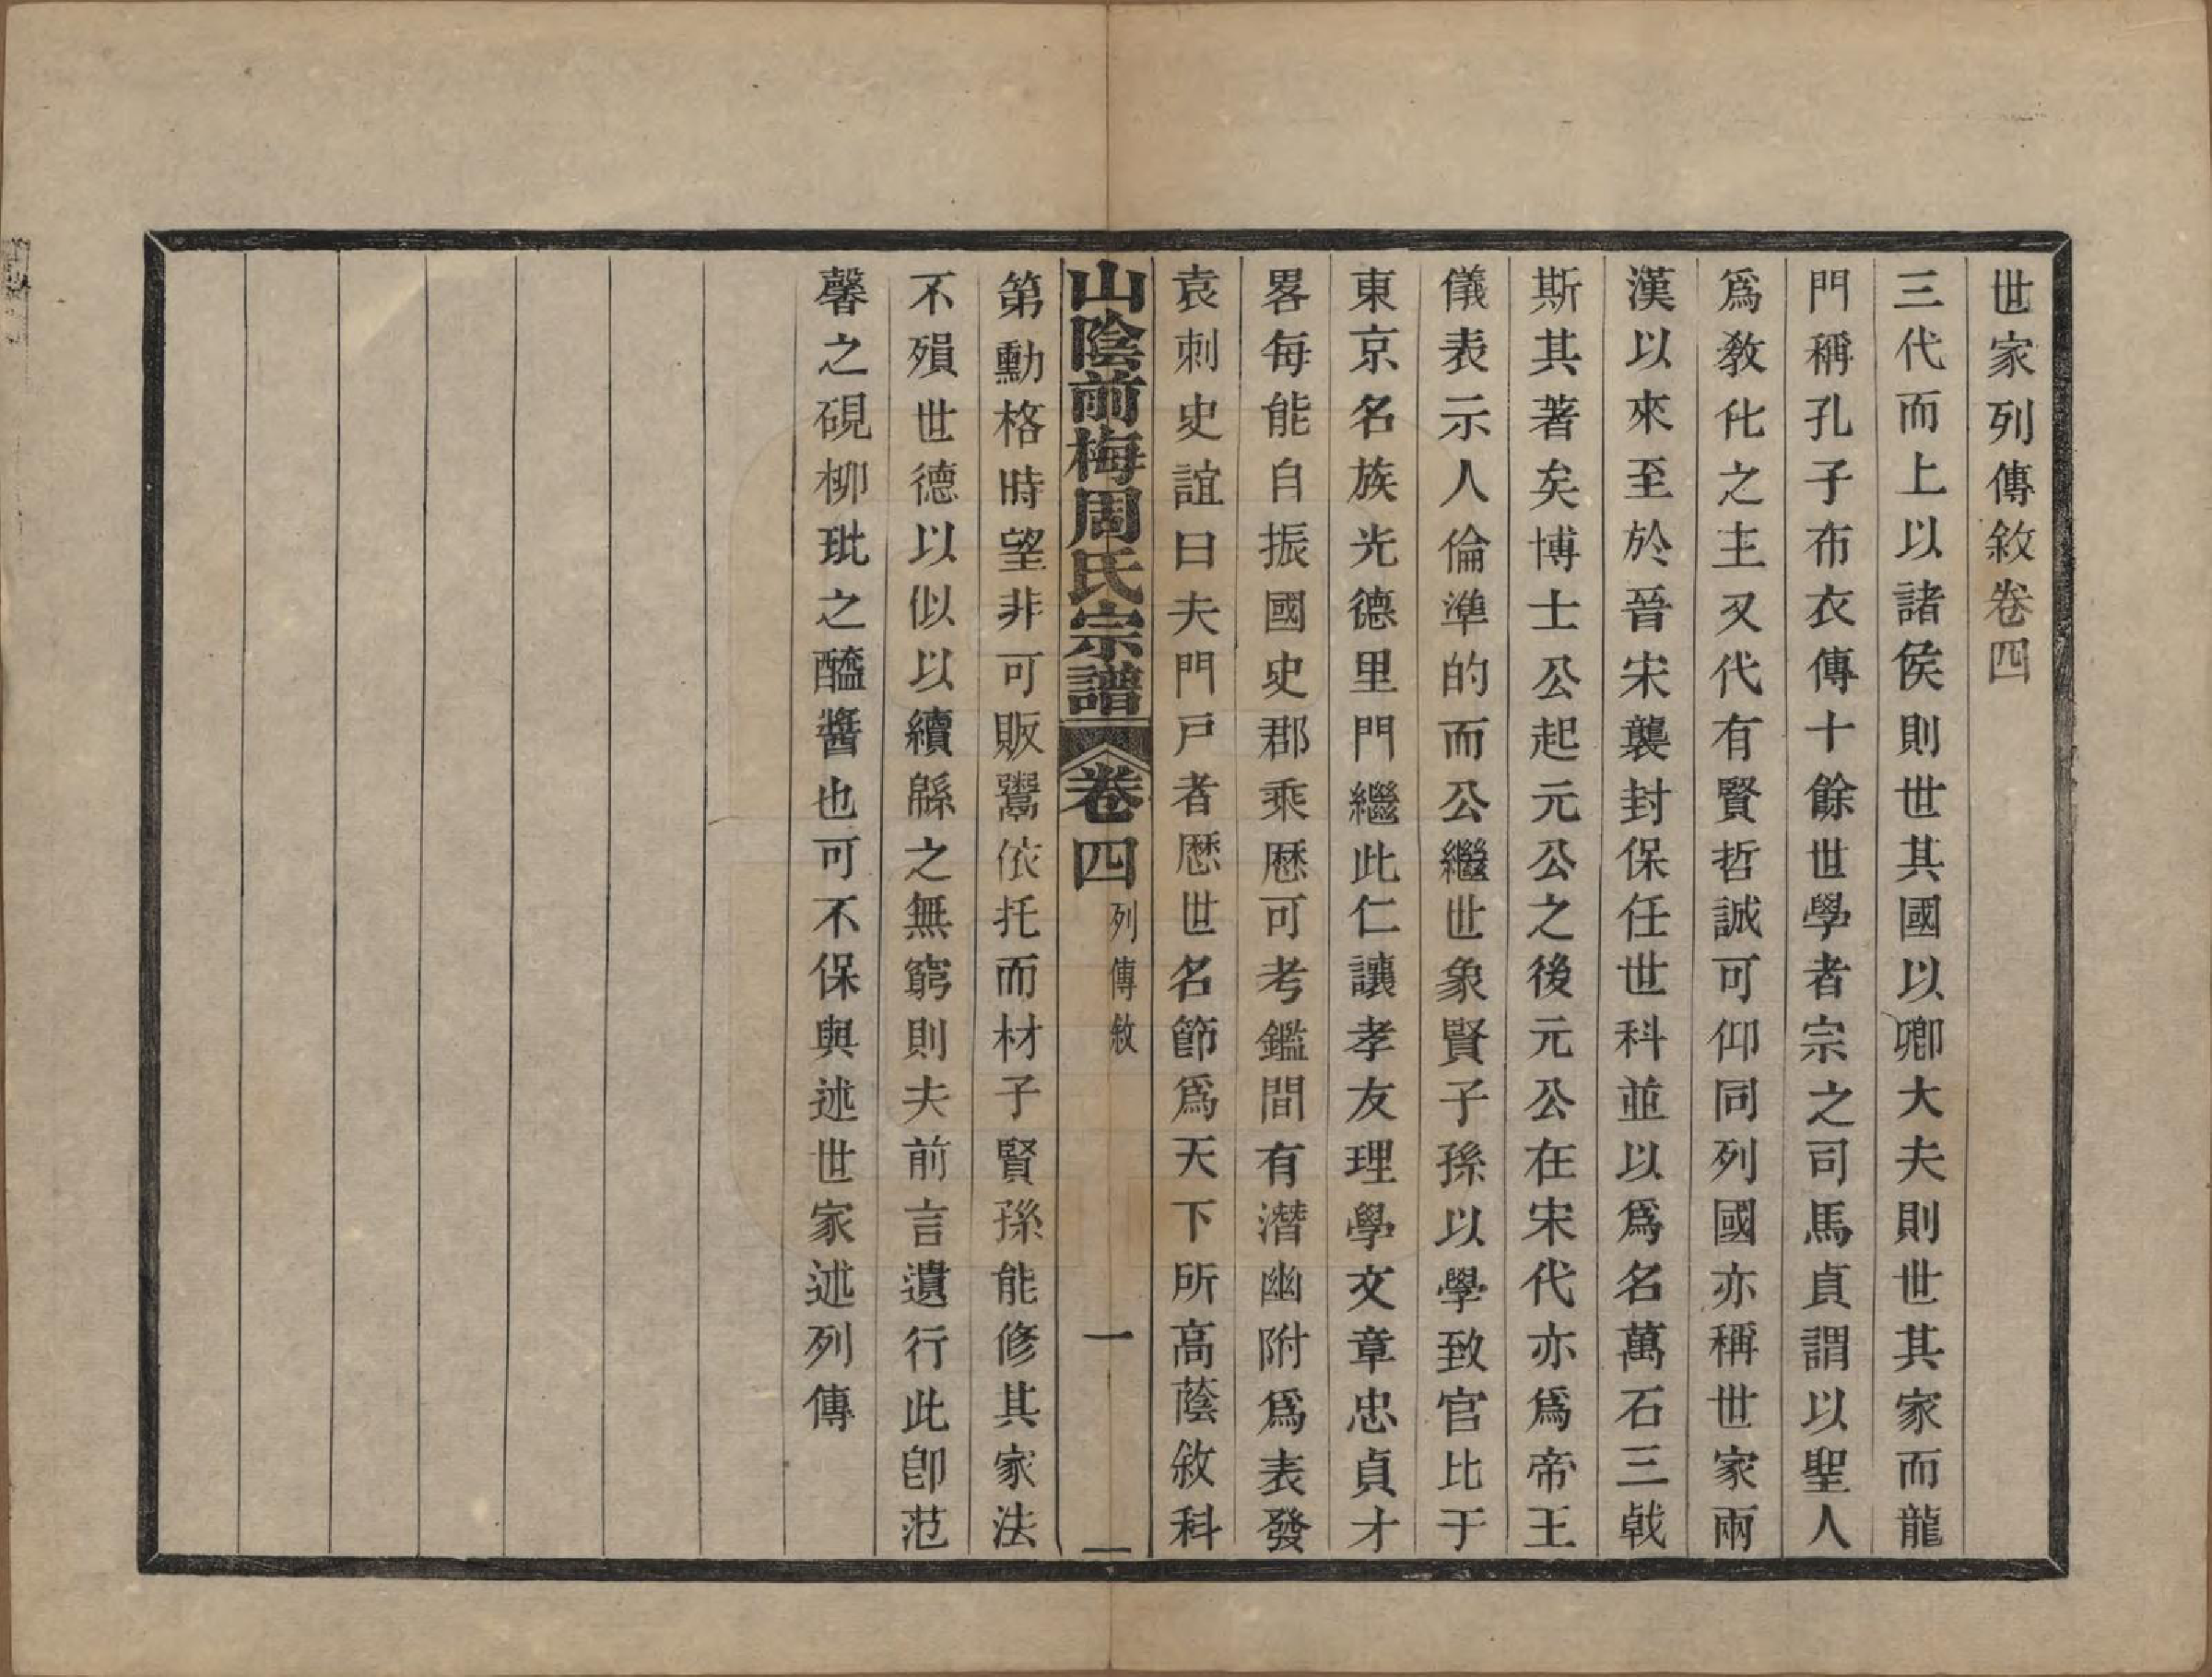 世家列傳敘卷四
三代而上以諸侯則世其國以卿大夫則世其家而龍
門稱孔子布衣傳十餘世學者宗之司馬貞謂以聖人
爲敎化之主又代有賢哲誠可仰同列國亦稱世家兩
漢以來至於晉宋襲封保任世科並以爲名萬石三戟
斯其著矣博士公起元公之後元公在宋代亦爲帝王
儀表示人倫準的而公繼世象賢子孫以學致官比于
東京名族光德里門繼此仁讓孝友理學文章忠貞才
畧每能自振國史郡乘歷可考鑑間有潛幽附爲表發
袁刺史誼曰夫門戸者歷世名節爲天下所高蔭敘科
山陰前梅周氏宗譜 卷四 列傳敘 一
第勳格時望非可販鬻依托而材子賢孫能修其家法
不殞世德以似以續緜之無窮則夫前言遺行此卽范
馨之硯柳玭之醯醬也可不保與述世家述列傳